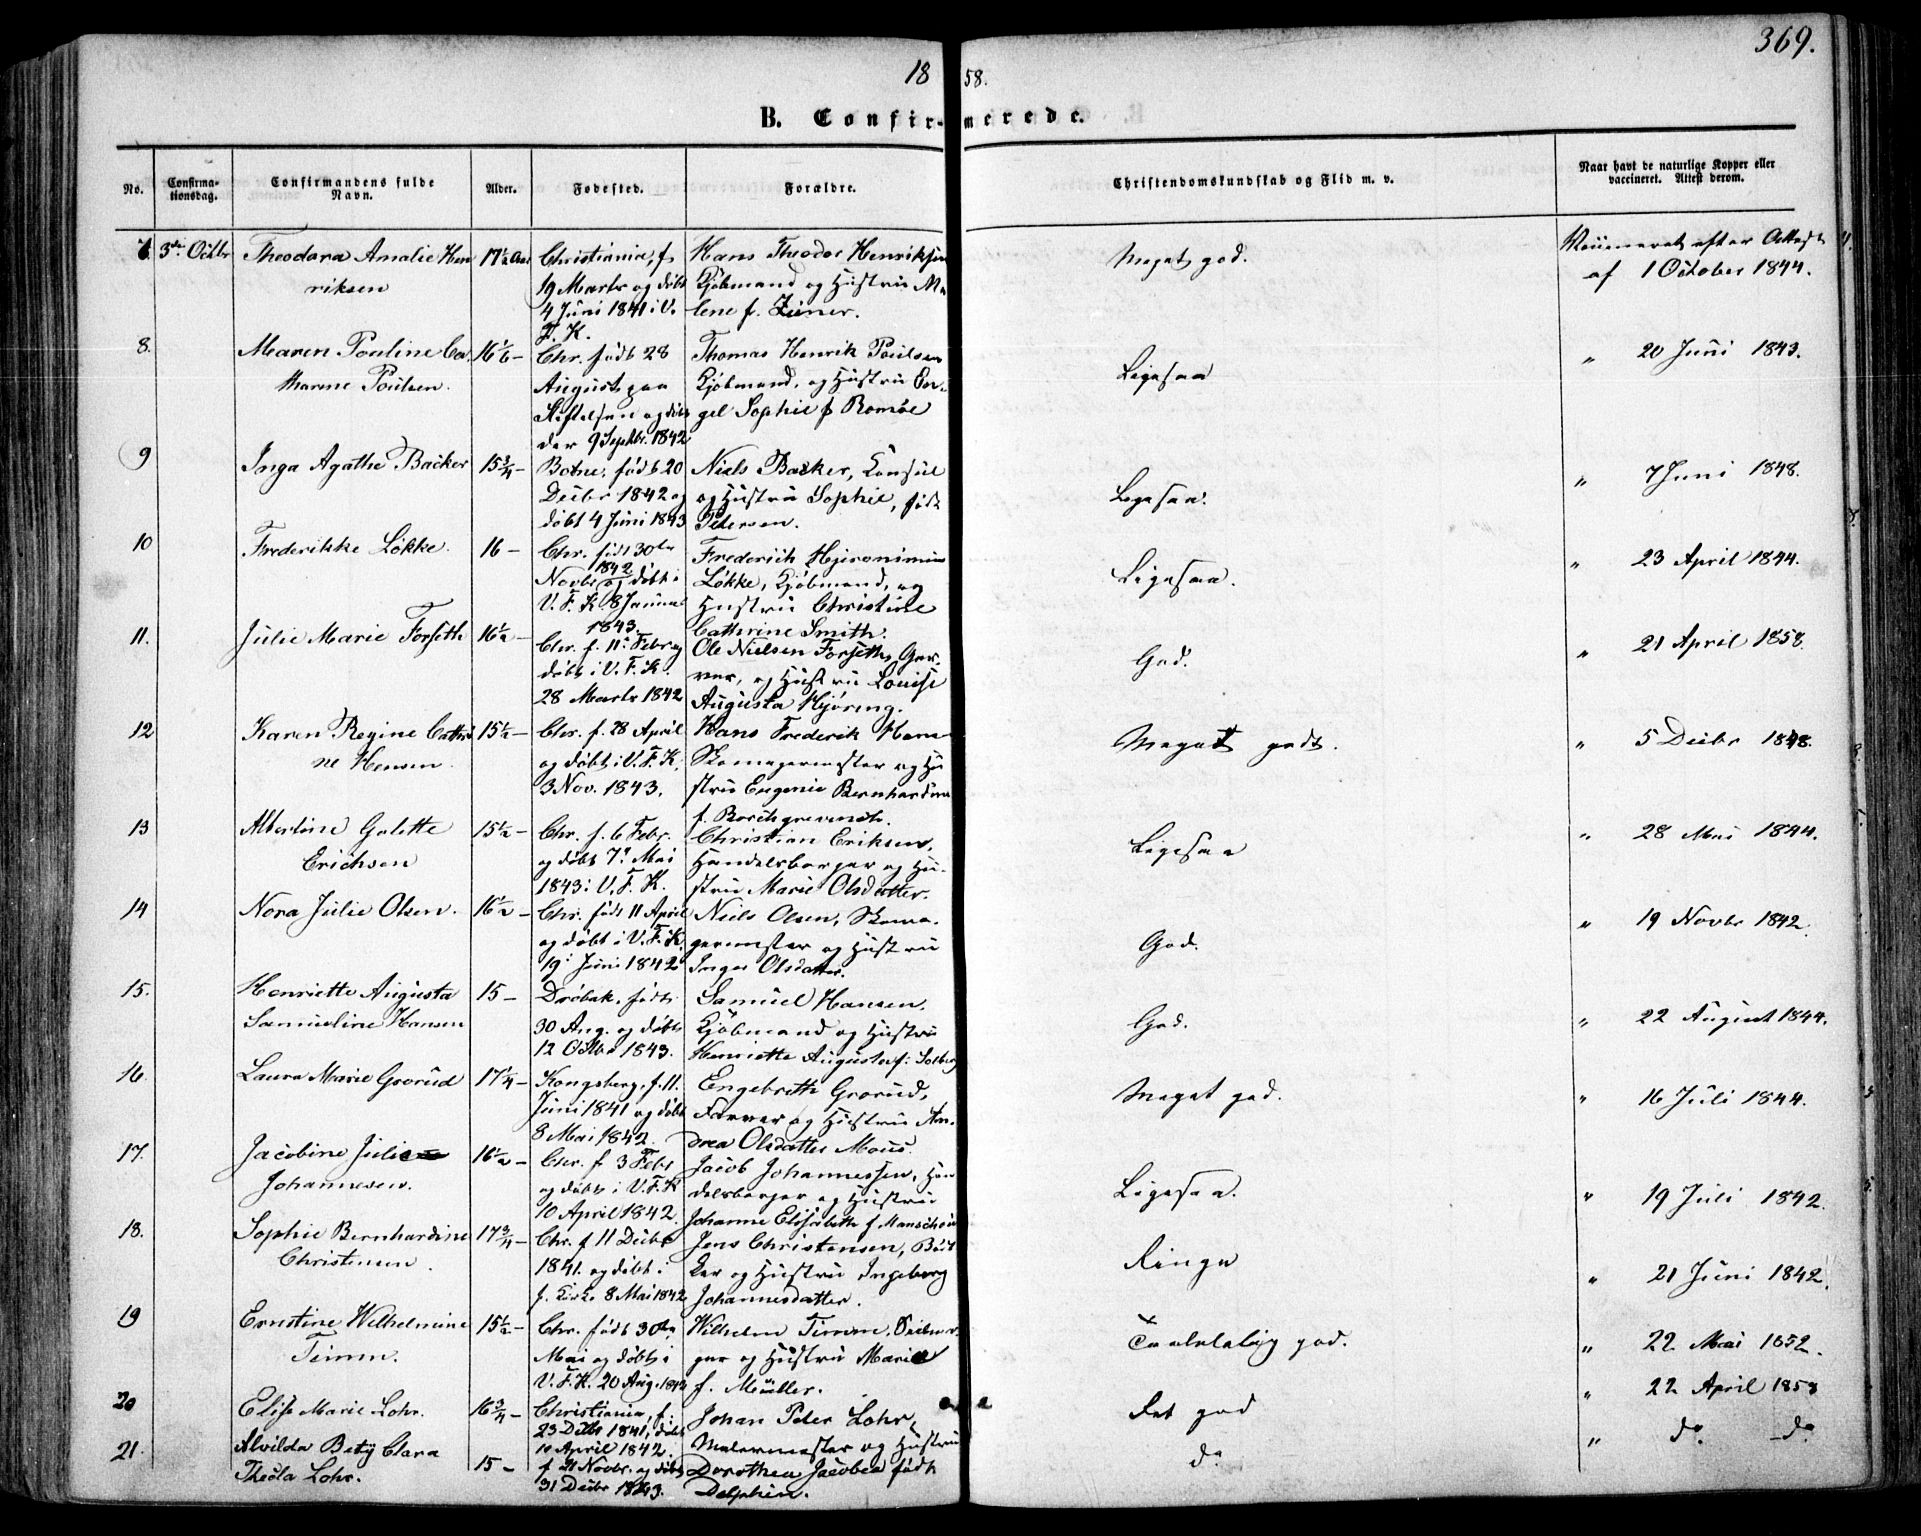 369.
18 58.
B. Confir- merede.
No.
Confirma-
tionsdag.
Confirmandens fulde
Navn.
Alder.
Fødested.
Forældre.
Christendomskundskab og Flid m. v.
Naar havt de naturlige Kopper eller
vaccineret. Attest derom.
3die Octbr Theodora Amalie Hen 17½ Aar Christiania, f. Hans Theodor Henriksen Meget god.
riksen 19 Marts og døbt Kjøbmand og Hustru Ma af 1 October 1844.
4 Juni 1841 i V. lene f.
F. K.
8. Maren Pouline Ca 16 Chr. født 28 Thomas Henrik Poulsen Ligesaa " 20 Juni 1843.
tharine Poulsen. August paa Kjøbmand, og Hustru En-
Stiftelsen og døbt gel Sophie f Romöe
der 9 Septbr. 1842
9 Inga Agathe Backer 15¾ – Botne, født 20 Niels Backer, Konsul Ligesaa. " 7 Juni 1848.
Decbr 1842 og og Hustru Sophie, født
døbt 4 Juni 1843 Petersen.
10 Frederikke Løkke. 16 – Chr. født 30te Frederich Hjeronimus Ligesaa. " 23 April 1844.
Novbr 1842 og døbt i Løkke, Kjøbmand, og
V. F. K 8 Januar Hustru Christine
1843. Cathrine Smith.
11. Julie Marie Forseth 16½ – Chr. f. 11 Febr og Ole Nielsen Forseth, Gar- God. " 21 April 1858.
døbt i V. F. K. ver, og Hustru Louise
28 Marts 1842 Augusta Hjöring.
12 Karen Regine Cathri 15½ – Chr. f. 28 April Hans Frederik Meget godt. " 5 Decbr 1848.
ne Hensen. og døbt i V. F. K. Skomagermester og Hu
3 Nov. 1843. stru Eugenie Bernhardine
f. Borchgrevinck.
13 Albertine Golette 15½ – Chr. f. 6 Febr. Christian Eriksen, Ligesaa " 28 Mai 1844.
Erichsen og døbt 7 Mai Handelsborger og Hu-
1843 i V. F. K. stru Marie Olsdatter.
14 Nora Julie Olsen. 16½ – Chr. født 11 April Niels Olsen, Skoma- God. " 19 Novbr 1842.
og døbt i V. F. K. germester og Hustru
19 Juni 1842 Inger Olsdatter.
15. Henriette Augusta 15 – Drøbak, født Samuel Hansen, God. " 22 August 1844.
Samueline Hansen 30 Aug. og døbt Kjøbmand og Hustru
12 Octbr 1843. Henriette Augusta f. Solberg
16. Laura Marie Grorud 17¼ – Kongsberg, f. 11. Engebreth Grorud, Meget god. " 16 Juli 1844.
Juni 1841 og døbt Farver og Hustru An-
8 Mai 1842. drea Olsdatter Mous.
17. Jacobine Julie 16½ – Chr. f 3 Febr Jacob Johannessen, Han Ligesaa. " 19 Juli 1842.
Johannesen. og døbt i V. F. K delsborger og Hustru
10 April 1842. Johanne Elisabeth f
18. Sophie Bernhardine 17¾ – Chr. f 11 Decbr Jens Christensen, Bød Ringe " 21 Juni 1842.
Christensen. 1841. og døbt i ker og Hustru Ingeborg
f. Kirke 8 Mai 1842 Johannesdatter.
19 Ernstine Wilhelmine 15½ – Chr. født 30te Wilhelm Timm, Taalelelig god. " 22 Mai 1852.
Timm. Mai og døbt i og Hustru Marie
V. F. K. 20 Aug. f. Müller.
20 Elise Marie Lohr. 16¾ – Christiania, f. Johan Peter Lohr, Ret god " 22 April 1858
23 Decbr 1841, døbt Malermester og Hustru
10 April 1842. Dorothea Jacobea født
21. Alvilda Bety Clara 15 – f 21 Novbr. og døbt Delphin. do " do do
Thecla Lohr. 31 Decbr 1843.